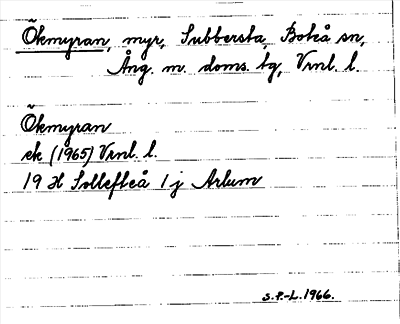 Ökmyran, myr, Subbersta, Boteå sn,
Ång. m. doms. tg, Vrnl. l.
Ökmyran
ek (1965) Vrnl. l.
19 H Sollefteå 1 j Arlum
S.P.-L. 1966.